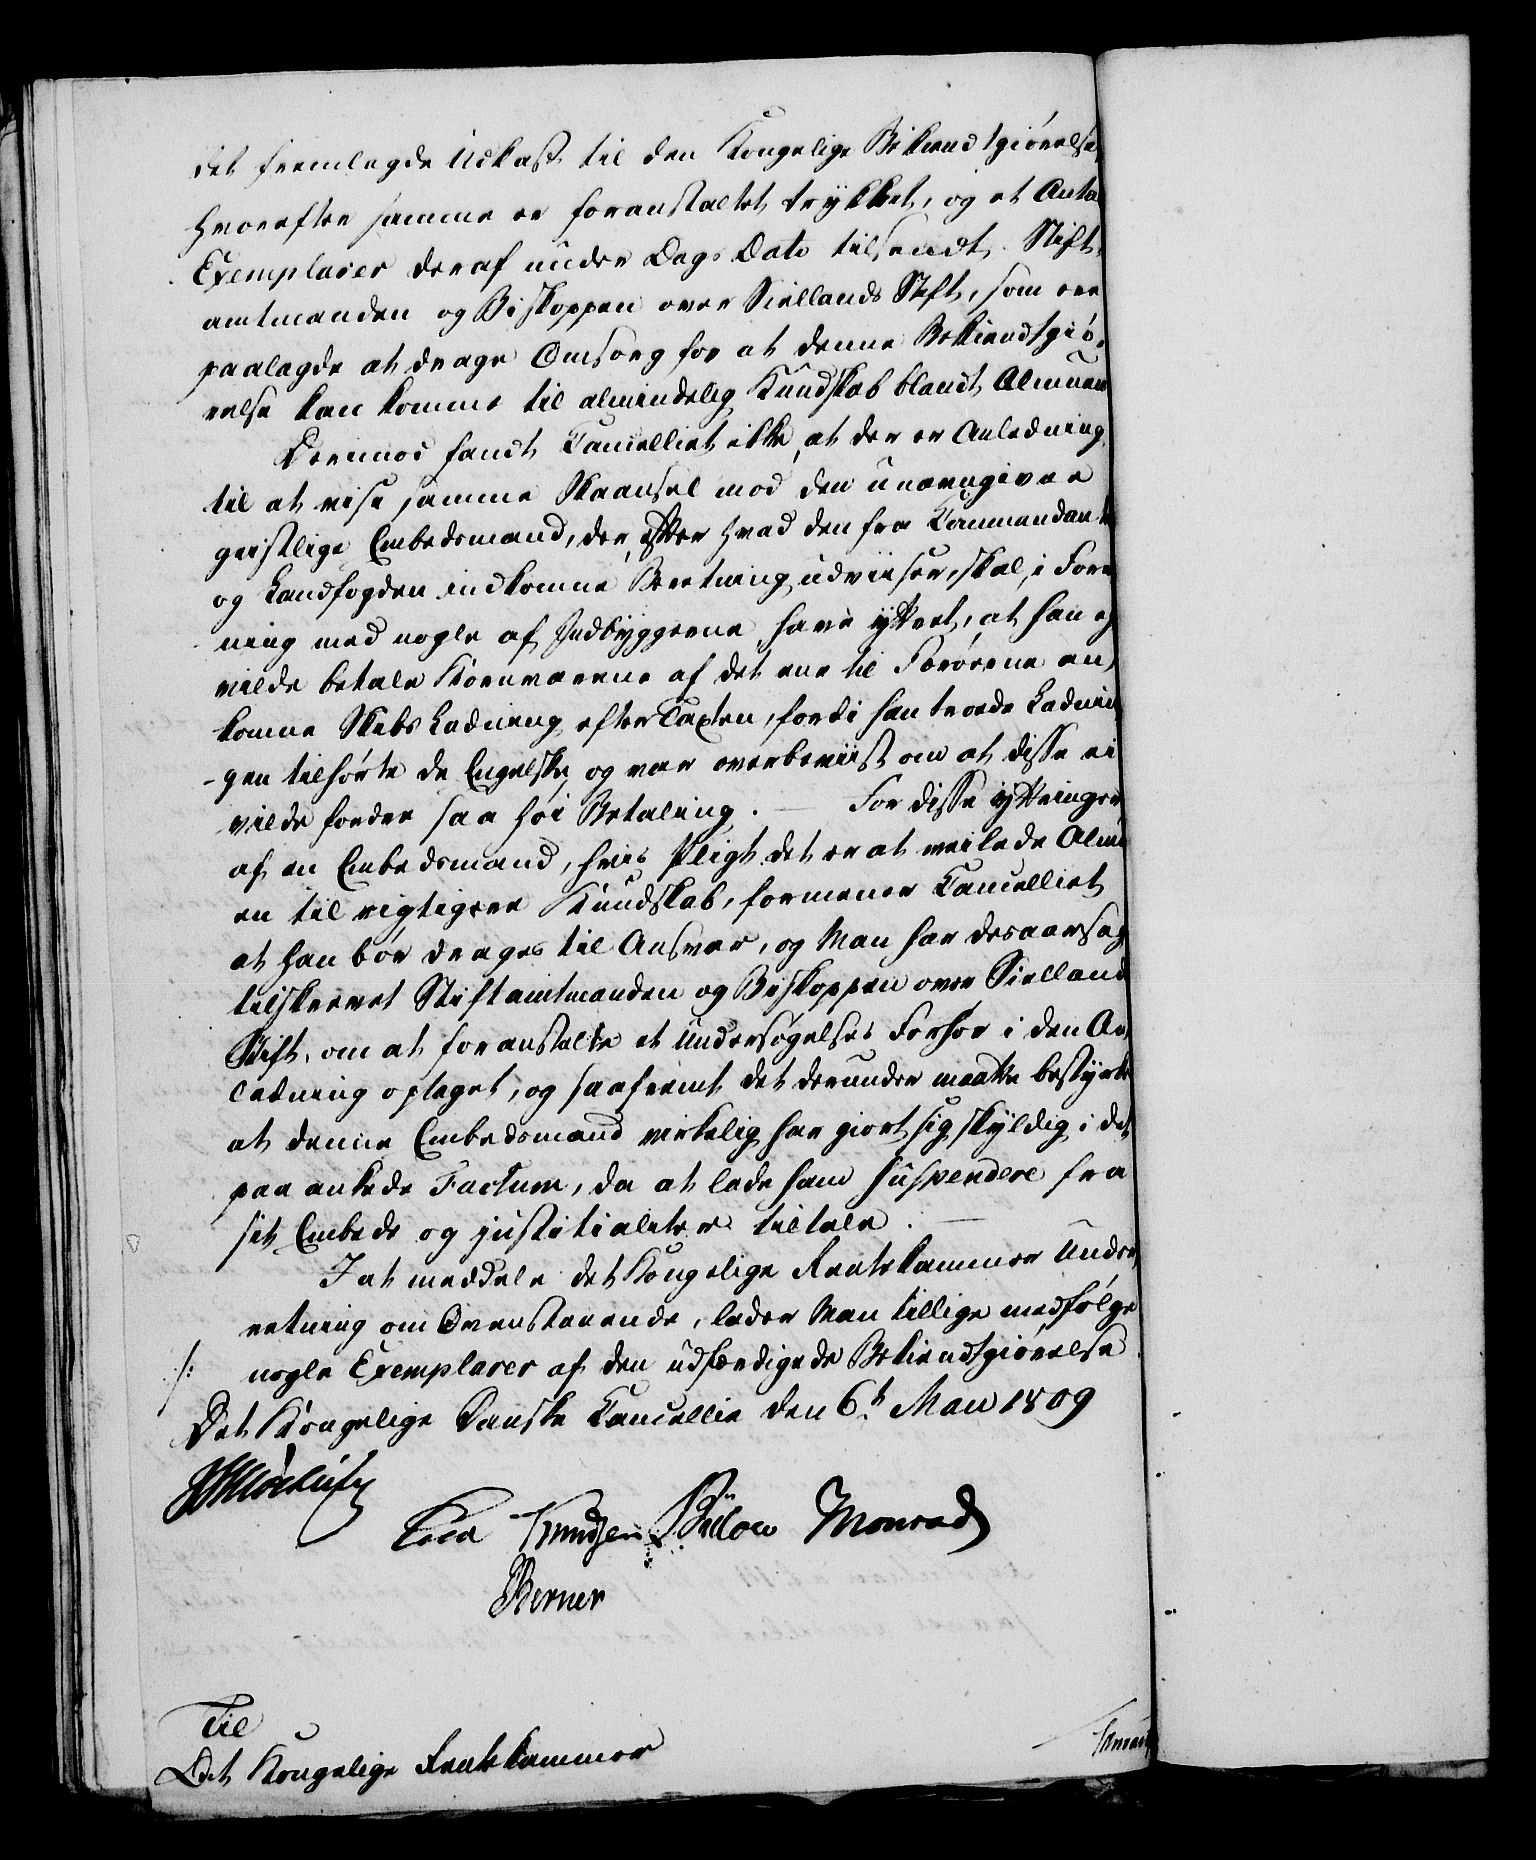 det fremlagde Udkast til den Kongelige Bekiendtgiørelse,
hvorefter samme er foranstaltet trykket, og et Anta
Exemplarer deraf under Dags Dato tilsendt Stift,
amtmanden og Biskoppen over Siellands Stift, som ere
paalagde at drage Omsorg for at denne Bekiendtgiø,
relse kan komme til almindelig Kundskab blandt Almuen
Derimod fandt Cancelliet ikke, at der er Anledning
til at vise samme Skaansel mod den unævngivne
geistlige Embedsmand, der, efter hvad den fra Commandanten
og Landfogden indkomne Beretning udviiser, skal, i Fore
ning med nogle af Indbyggerne, have yttret, at han ej
vilde betale Kornvarene af det ene til Færøerne an,
komne Skibs Ladning efter Taxten, fordi han troede Ladnin
-gen tilhørte de Engelske, og var overbeviist om at disse ei
vilde fordre saa høi Betaling. — For disse Yttringer
af en Embedsmand, hvis Pligt det er at veilede Almu
en til rigtigere Kundskab, formener Cancelliet
at han bør drages til Ansvar, og Man har desaarsag
tilskrevet Stiftamtmanden og Biskoppen over Sielland
Stift, om at foranstalte et Undersøgelses Forhør i den An,
ledning optaget, og saafremt det derunder maatte bestyrkes
at denne Embedsmand virkelig har giort sig skyldig i det
paaankede Factum, da at lade ham suspendere fra
sit Embede og justitialiter tiltale. —
I at meddele det Kongelige Rentekammer Under,
retning om Ovenstaaende, lader Man tillige medfølge
./: nogle Exemplarer af den udfærdigede Bekiendtgiørelse.
Det Kongelige Danske Cancellie den 6.t Mai 1809
Knudsen Bülow Monrad
Berner
Til
Det Kongelige Rentekammer